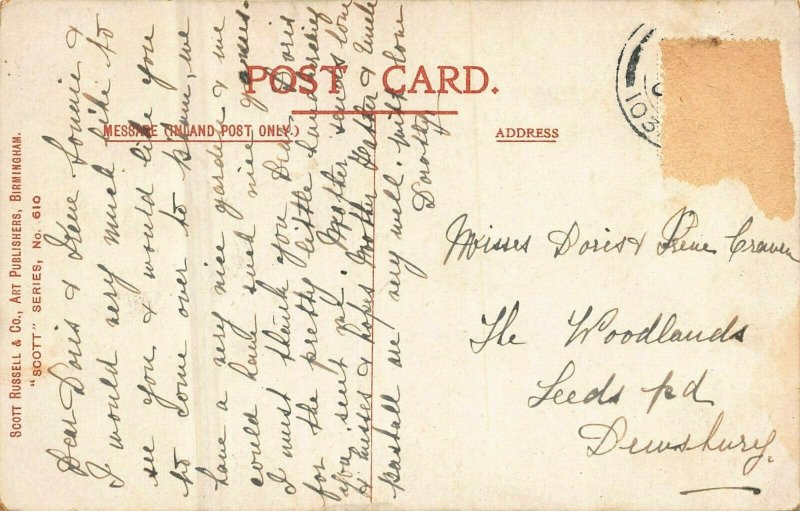 POST CARD.
MESSAGE (INLAND POST ONLY.)
ADDRESS
SCOTT RUSSELL & CO., ART PUBLISHERS, BIRMINGHAM.
"SCOTT" SERIES, No. 610
Dear Doris & Irene Connie &
I would very much like to
see you & would like you
to come over to, we
have a very nice garden & we
could have such nice games.
I must thank you Dear Doris
for the pretty little handkerchief
you sent me. Mother sends love
& kisses & hopes Mother Father & Uncle
are very well. with love
Dorothy
Misses Doris & Irene Craven
The Woodlands
Leeds rd
Dewsbury.